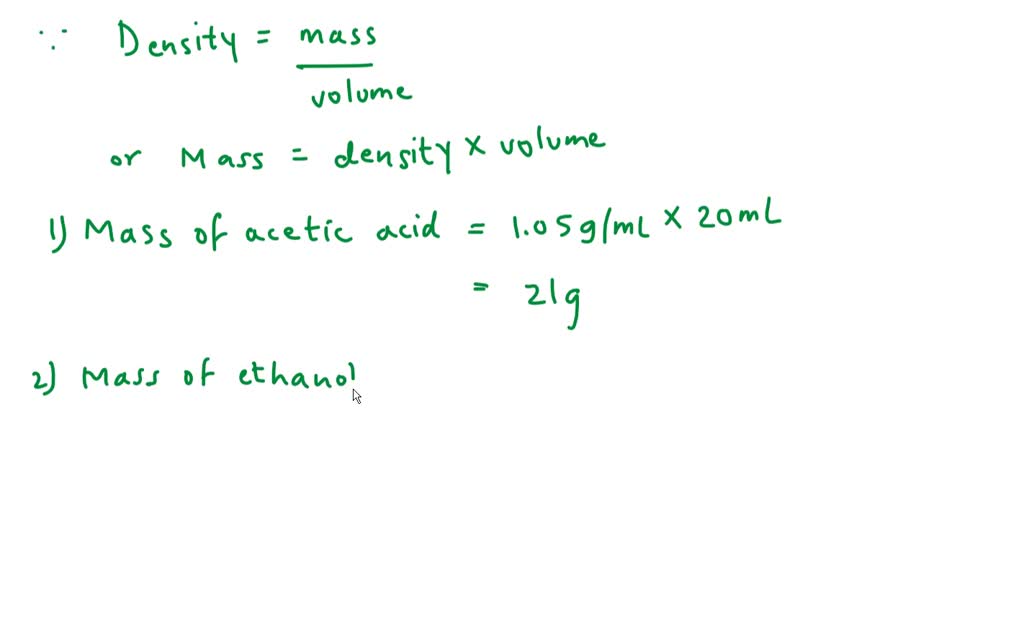 ∵ Density = mass
volume
or Mass = density × volume
1) Mass of acetic acid = 1.05 g/mL × 20 mL
= 21g
2) Mass of ethanol